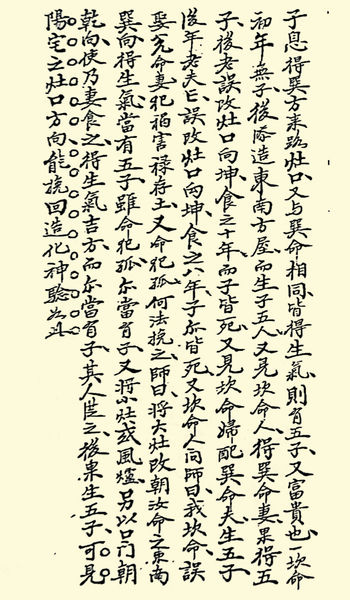 子息得巽方来路灶口又与巽命相同皆得生氣則有五子又富貴也一坎命
初年無子後隊造東南方屋而生子五人又見坎命人得巽命妻果得五
子後老誤改灶口向坤食之十年而子皆死又見坎命婦配巽命夫生五子
後年老夫亡誤改灶口向坤食之八年子亦皆死又坎命人问師曰我坎命誤
娶兊命妻犯祸害禄存土又命犯孤何法挽之師曰將大灶改朝汝命之東南
巽向得生氣當有五子雖命犯孤亦當有子又將小灶或風爐另以口門朝
乾向使乃妻食之得生氣吉方而亦當有子其人従之後果生五子可見
陽宅之灶口方向能挽回造化神驗如此